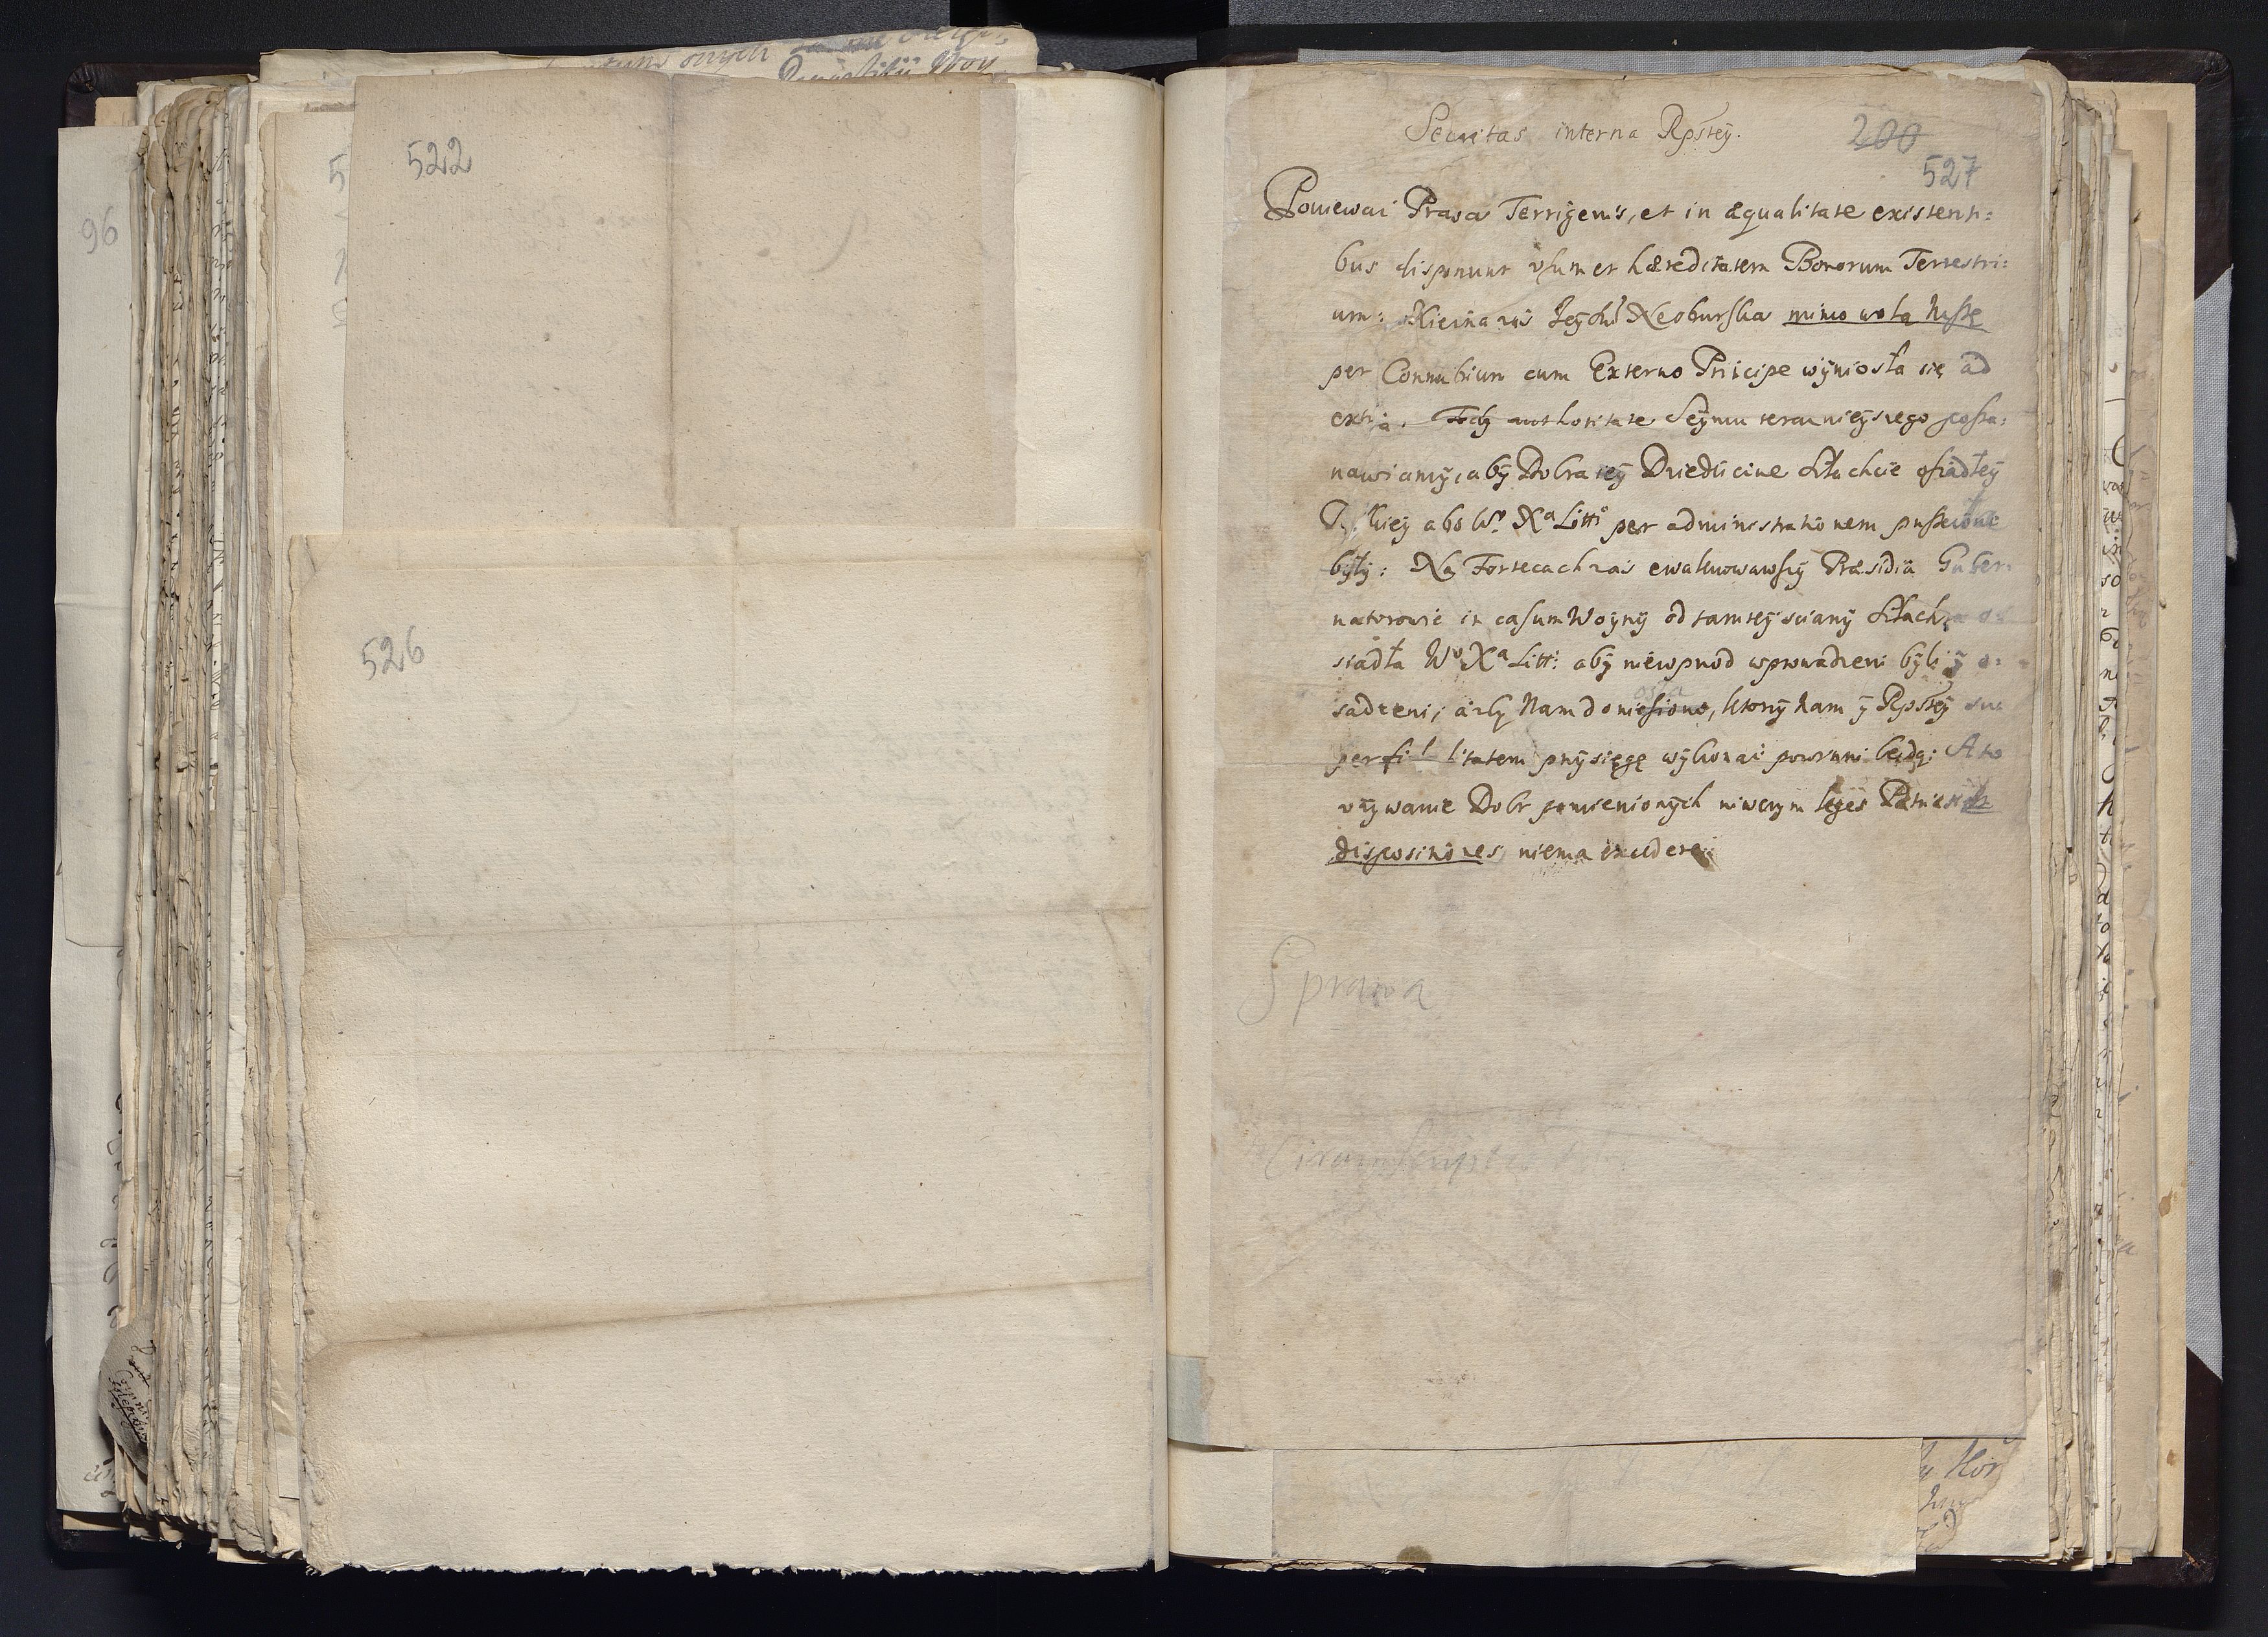 522
526
96
Securitas interna Rpstey.
200
527
Ponieważ Prawa Terrigenis, et in æqualitate existenti=
bus disponunt usum et hæreditatem Bonorum Terrestri=
um: Xiężna zaś Jey Neoburska mimo wolą Nassę
per Connubium cum Externo Principe wyniosła się ad
extra. Tedy authoritate Seymu teraznieyszego posta=
nawiamy, aby Dobra tey Dziedziczne Szlachcie osiadłey
abo Wo. Xa Litto per administrationem puszczone
były: Na Fortecach zaś ewakuowawszy Præsidia Guber=
natorowie in casum Woyny od tamtey sciany Szlachta o=
siadła Wo Xa Litt: aby niewprzod wprowadzeni byli y o=
sadzeni, ażby Nam doniesiono, ktorzy Nam y Rpstey su=
per fidelitatem przysięgę wykonać powinni będą: A to
używanie Dobr pomienionych niwczym leges
dispositiones niema excedere
Sprawa